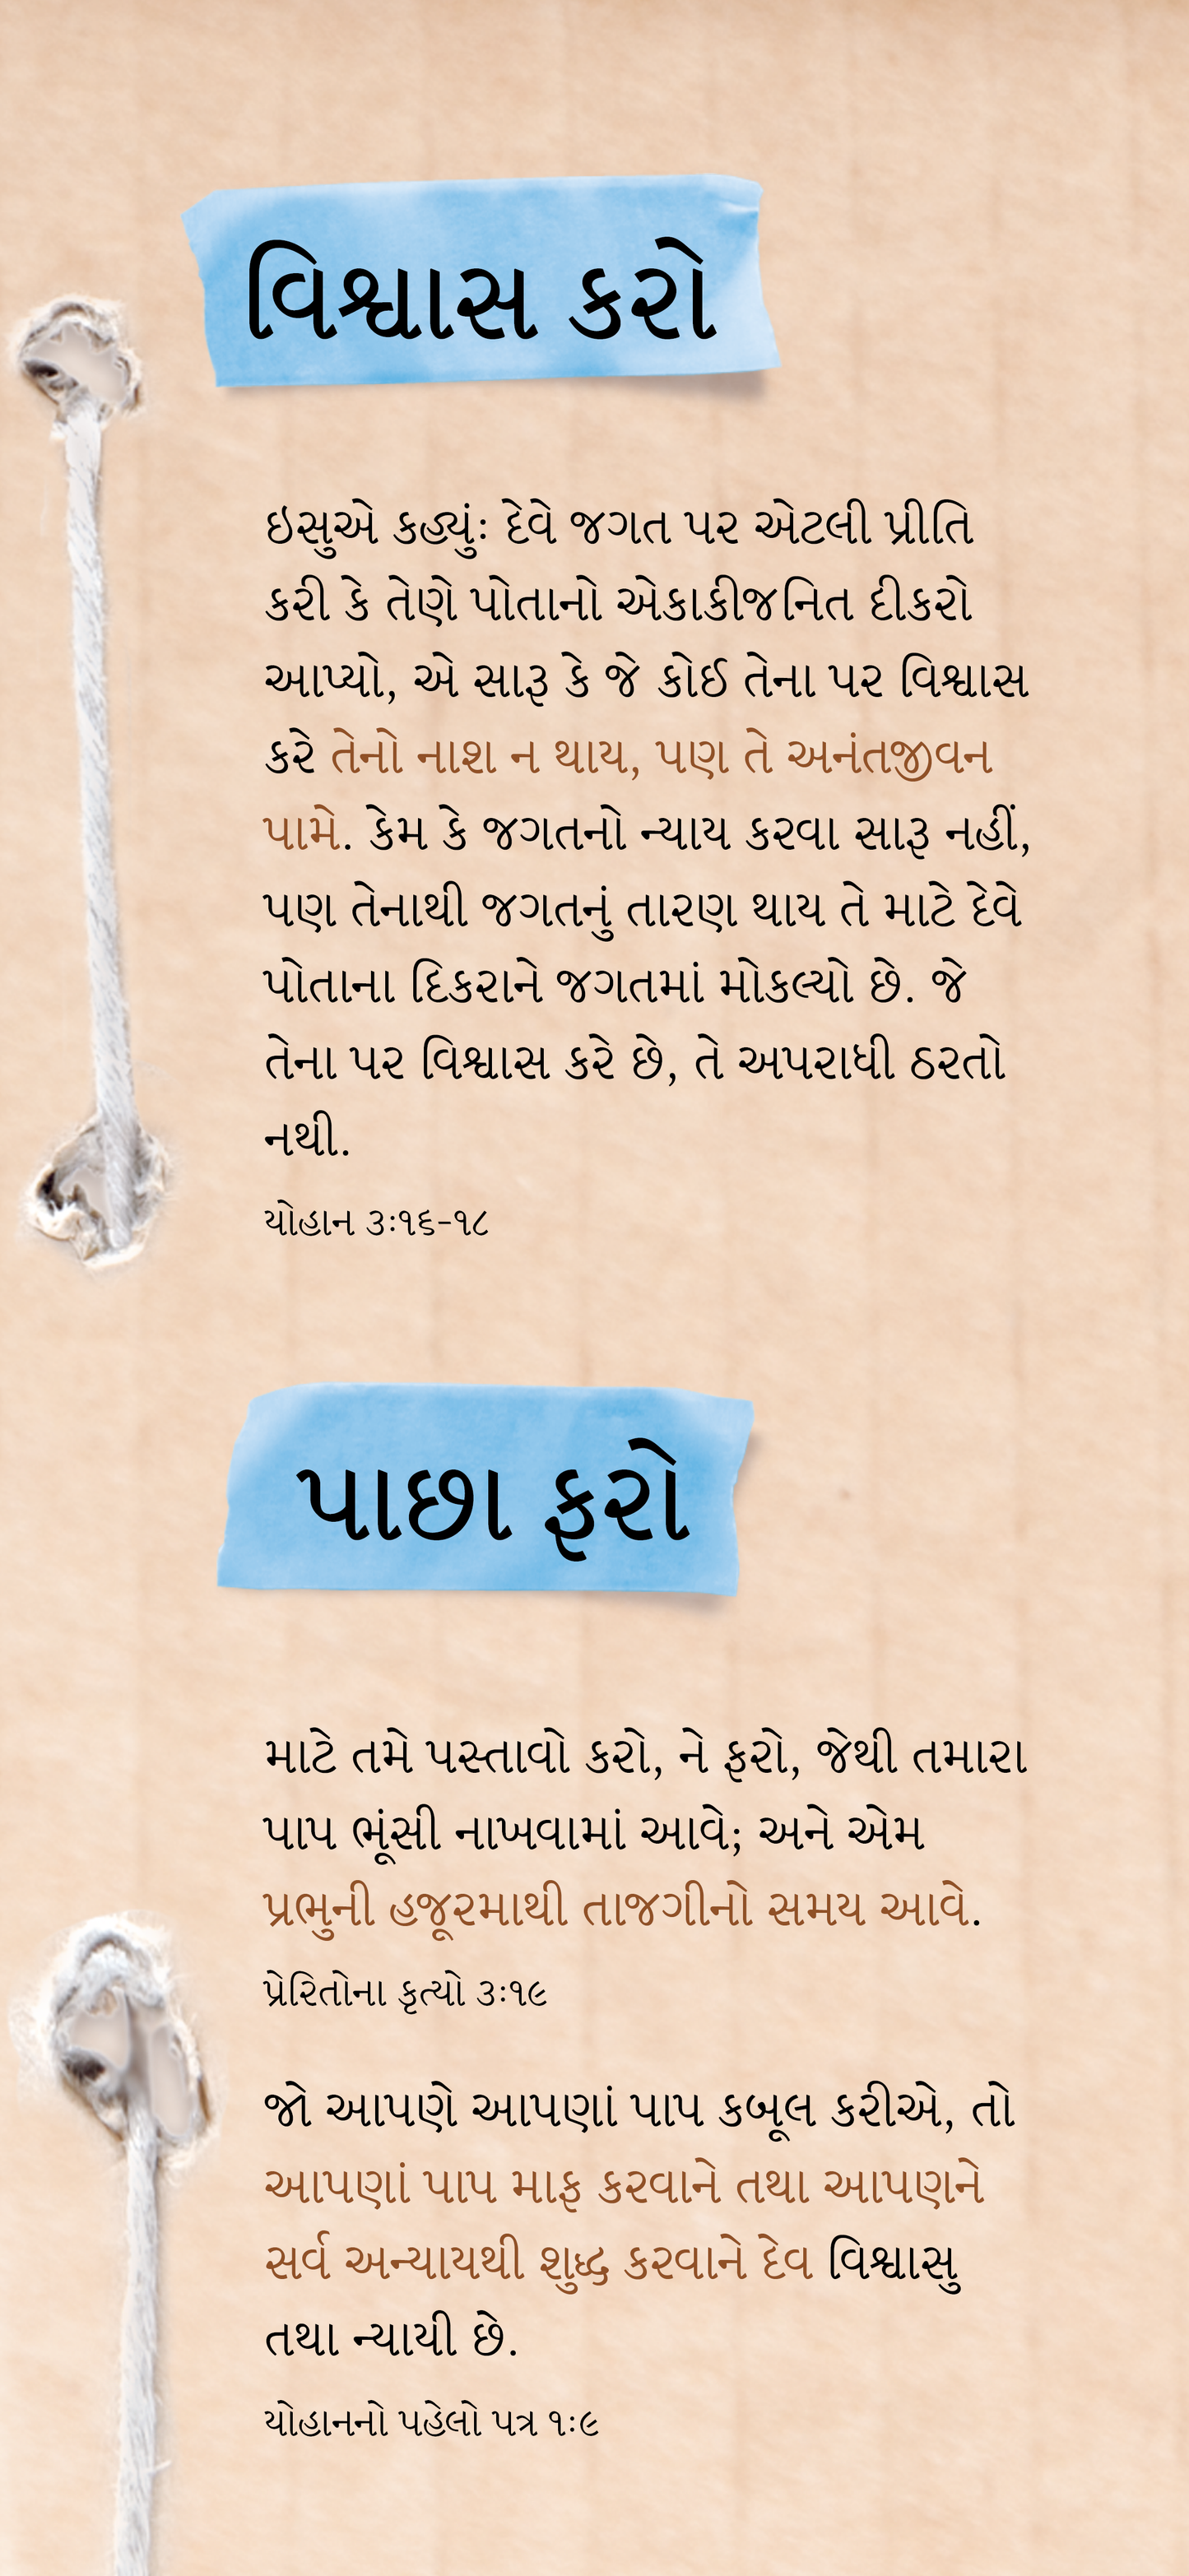 વિશ્વાસ કરો
ઇસુએ કહ્યું: દેવે જગત પર એટલી પ્રીતિ
કરી કે તેણે પોતાનો એકાકીજનિત દીકરો
આપ્યો, એ સારૂ કે જે કોઈ તેના પર વિશ્વાસ
કરે તેનો નાશ ન થાય, પણ તે અનંતજીવન
પામે. કેમ કે જગતનો ન્યાય કરવા સારૂ નહીં,
પણ તેનાથી જગતનું તારણ થાય તે માટે દેવે
પોતાના દિકરાને જગતમાં મોકલ્યો છે. જે
તેના પર વિશ્વાસ કરે છે, તે અપરાધી ઠરતો
નથી.
યોહાન ૩:૧૬-૧૮
પાછા ફરો
માટે તમે પસ્તાવો કરો, ને ફરો, જેથી તમારા
પાપ ભૂંસી નાખવામાં આવે; અને એમ
પ્રભુની હજૂરમાથી તાજગીનો સમય આવે.
પ્રેરિતોના કૃત્યો ૩:૧૯
જો આપણે આપણાં પાપ કબૂલ કરીએ, તો
આપણાં પાપ માફ કરવાને તથા આપણને
સર્વ અન્યાયથી શુદ્ધ કરવાને દેવ વિશ્વાસુ
તથા ન્યાયી છે.
યોહાનનો પહેલો પત્ર ૧:૯